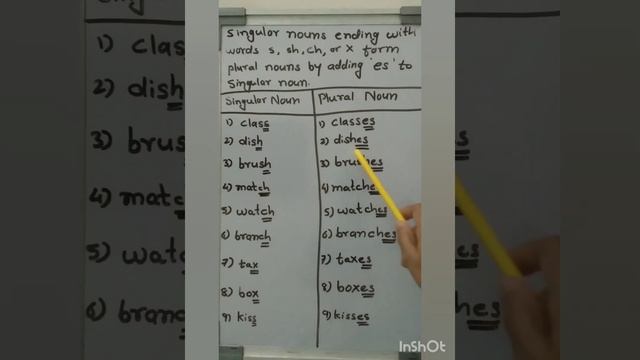 Singulor nouns ending with
words s, sh, ch, or x form
plural nouns by adding 'es' to
Singulor noun.
Singulor Noun Plural Noun
1) class 1) classes
2) dish 2) dishes
3) brush 3) brushes
4) match 4) matches
5) watch 5) watches
6) branch 6) branches
7) tax 7) taxes
8) box 8) boxes
9) kiss 9) kisses
InShOt